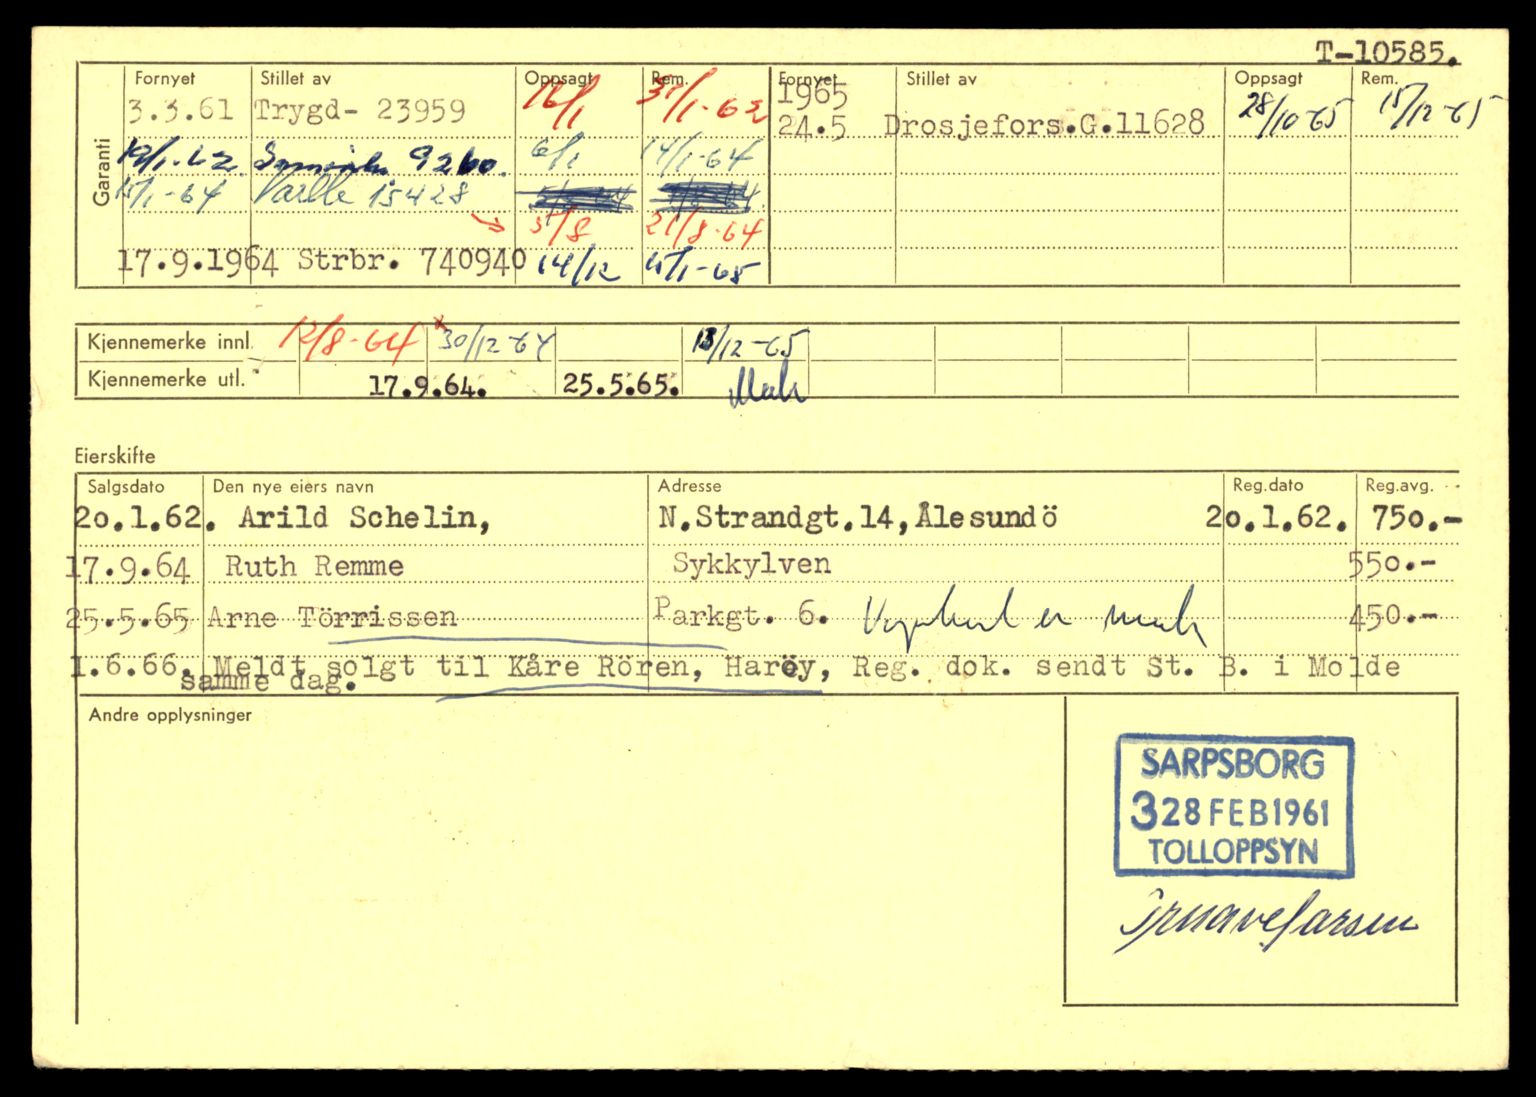 T-10585.
Garanti
Fornyet Stillet av Oppsagt Rem. Fornyet Stillet av Oppsagt Rem.
3.3.61 Trygd- 23959 16/1 31/1-62 1965
24.5 Drosjefors.G.11628 28/10-65 15/12-65
19/1-62 9260. 6/1 14/1-64
15/1-64 15428
31/8 21/8-64
17.9.1964 Strbr. 740940 14/12 15/1-65
Kjennemerke innl. 12/8-64 30/12-64 13/12-65
Kjennemerke utl. 17.9.64. 25.5.65.
Eierskifte
Salgsdato Den nye eiers navn Adresse Reg.dato Reg.avg.
20.1.62. Arild Schelin, N.Strandgt.14,Ålesundö 20.1.62. 750.-
17.9.64 Ruth Remme Sykkylven 550.-
25.5.65 Arne Törrissen Parkgt. 6. 450.-
1.6.66. Meldt solgt til Kåre Rören, Haröy, Reg. dok. sendt St. B. i Molde
samme dag.
Andre opplysninger
SARPSBORG
3 28 FEB 1961
TOLLOPPSYN